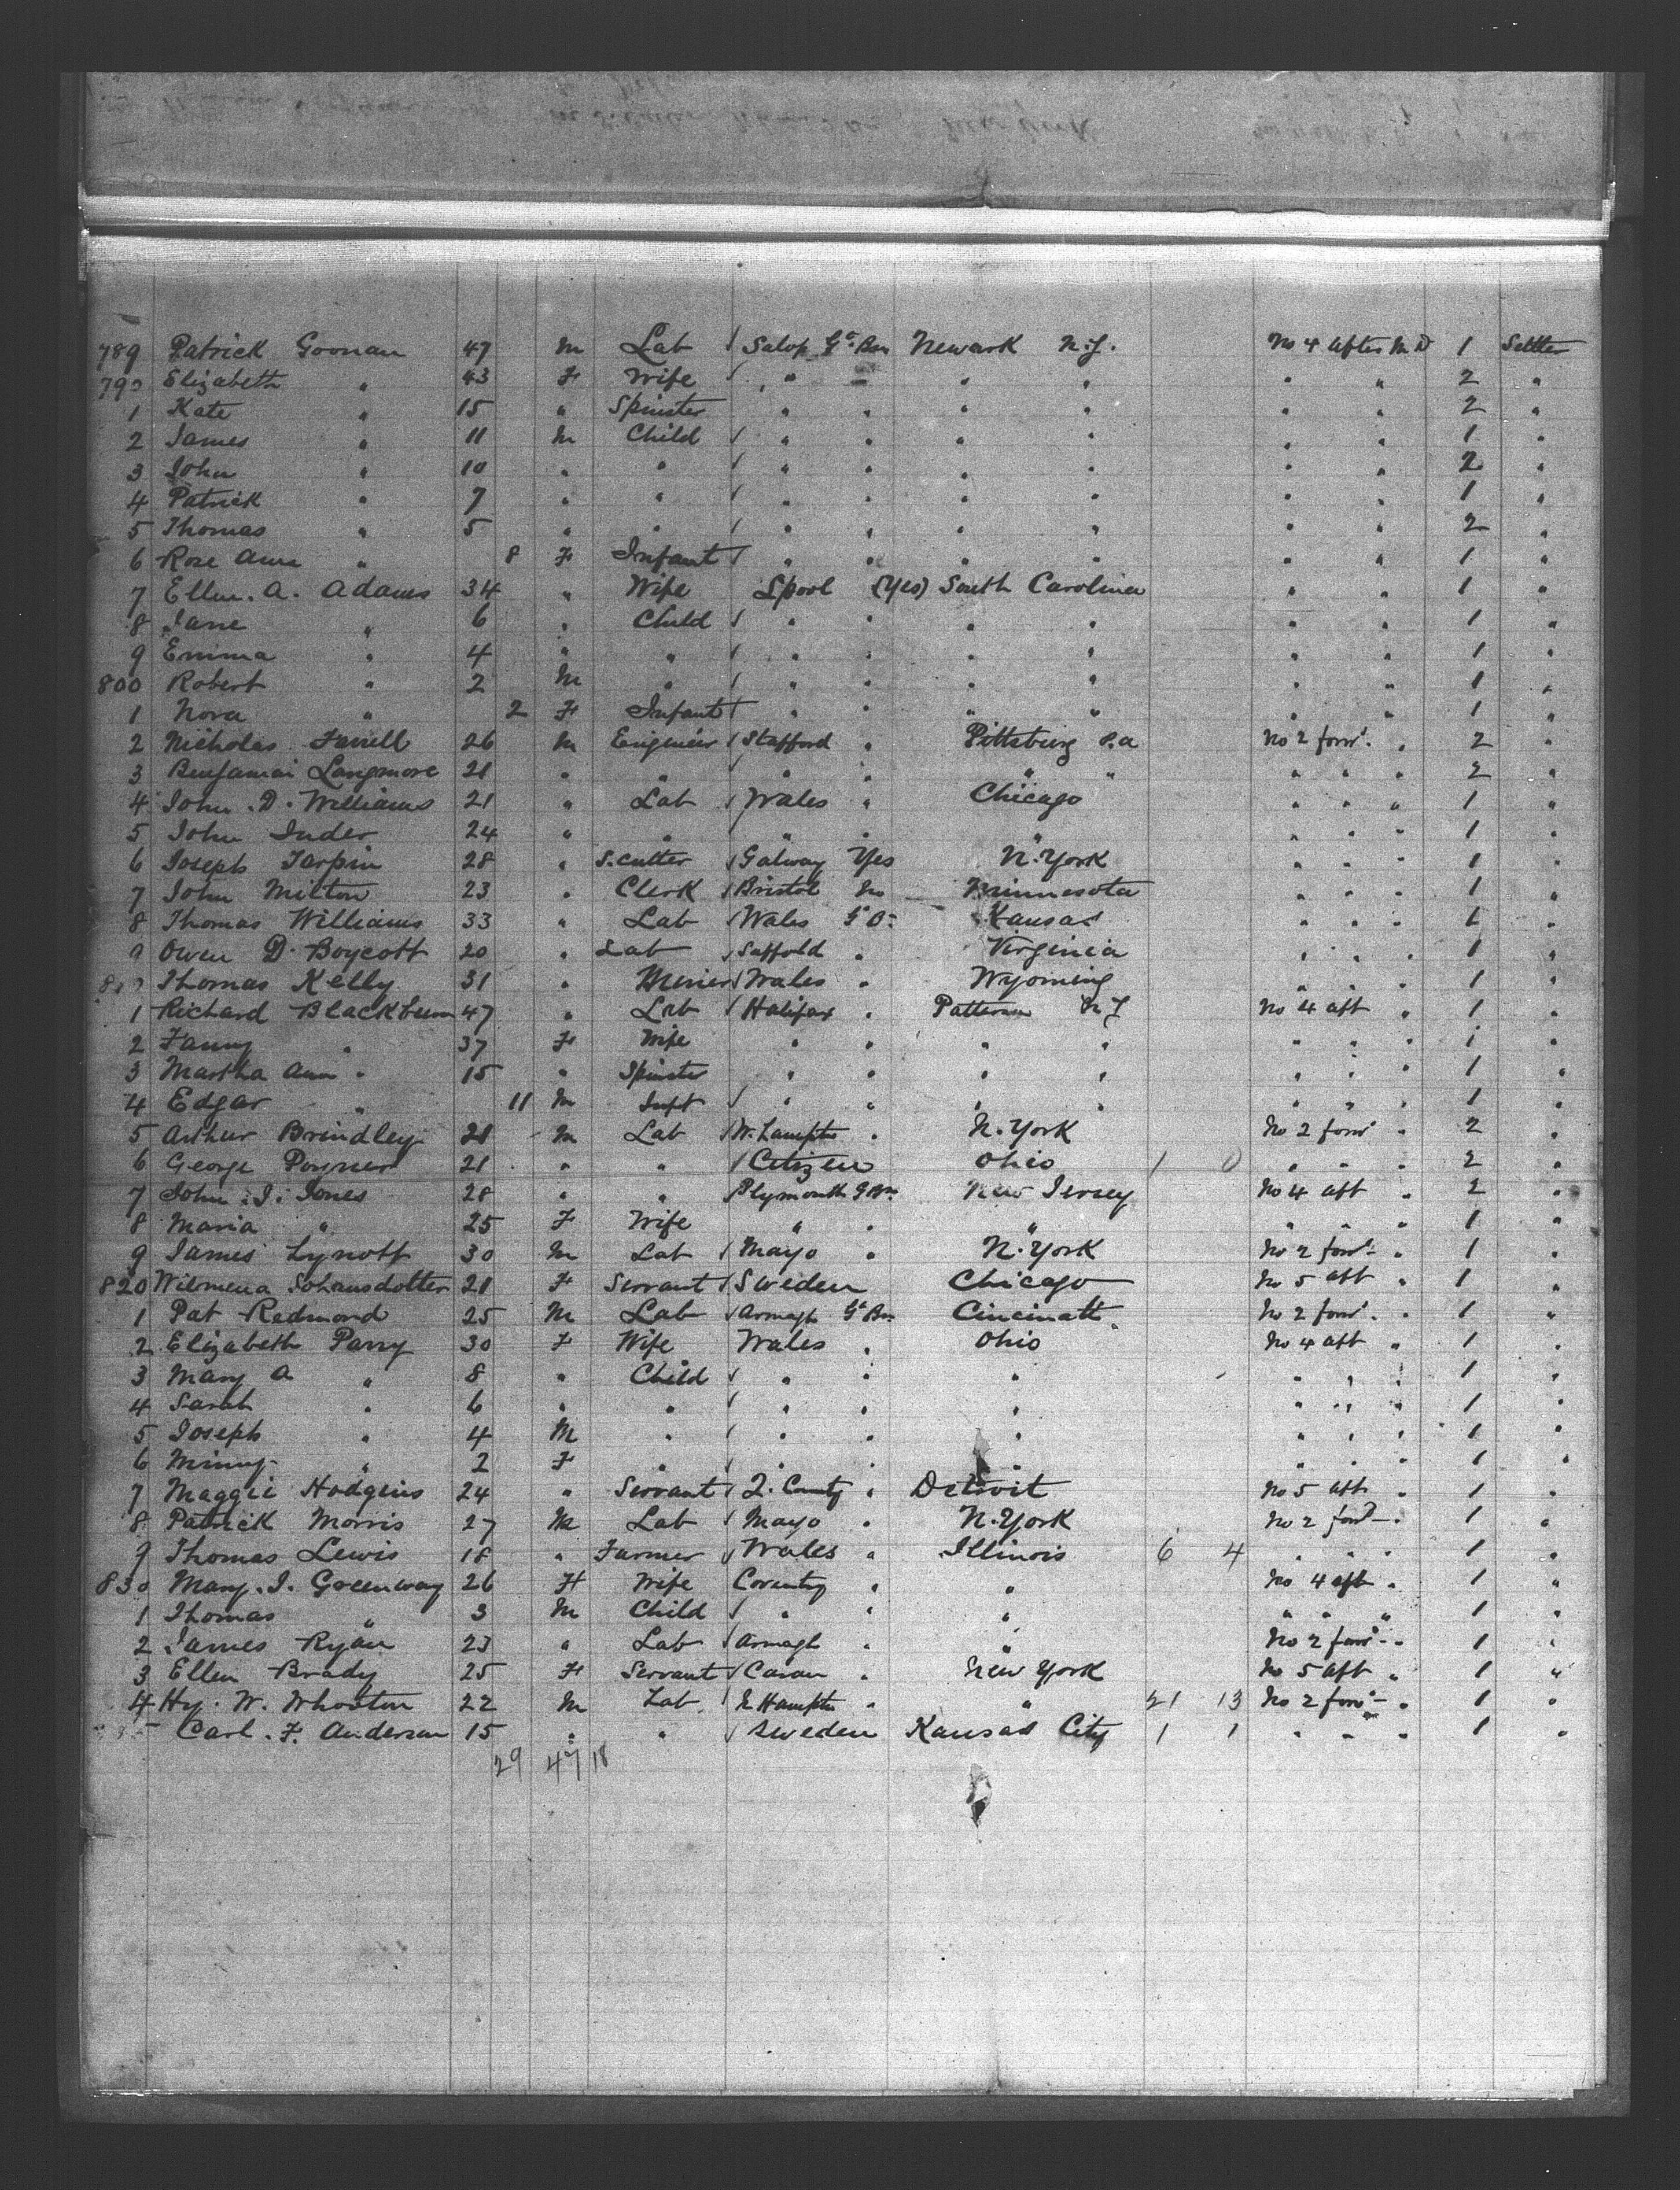 789 Patrick Goonan 47 M Lab / Salop Gt Brn Newark N.J. No 4 After M D 1 Settler
790 Elizabeth " 43 F Wife / " " " " " 2 "
1 Kate " 15 " Spinster " " " " " " 2 "
2 James " 11 M Child / " " " " " " 1 "
3 John " 10 " " / " " " " " " 2 "
4 Patrick " 7 " " / " " " " " " 1 "
5 Thomas " 5 " " / " " " " " " 2 "
6 Rose Ann " 8 F Infant / " " " " " " 1 "
7 Ellen. A. Adams 34 " Wife Lpool (Yes) South Carolina " " 1 "
8 Jane " 6 " Child / " " " " " " 1 "
9 Emma " 4 " " / " " " " " " 1 "
800 Robert " 2 M " / " " " " " " 1 "
1 Nora " 2 F Infant / " " " " " " 1 "
2 Nicholas Farrell 26 M Engineer / Stafford " Pittsburg P.a No 2 forwd. " 2 "
3 Benjamin Langmore 21 " " / " " " " " " " 2 "
4 John. D. Williams 21 " Lab / Wales " Chicago " " " 1 "
5 John Inder 24 " " " " " " " " 1 "
6 Joseph Tarpin 28 " S. cutter / Galway Yes N. York " " " 1 "
7 John Milton 23 " Clerk / Bristol No Minnesota " " " 1 "
8 Thomas Williams 33 " Lab / Wales Gt B. Kansas " " " 1 "
9 Owen D. Boycott 20 " Lab / Suffold " Virginia " " " 1 "
810 Thomas Kelly 31 " Miner / Wales " Wyoming " " " 1 "
1 Richard Blackburn 47 " Lab / Halifax " Patterson N J No 4 aft " 1 "
2 Fanny " 37 F Wife " " " " " " " 1 "
3 Martha Ann " 15 " Spinster " " " " " " " 1 "
4 Edgar " 11 M Inft / " " " " " " " 1 "
5 Arthur Brindley 21 M Lab / W. Hampton " N. York No 2 forwd " 2 "
6 George Poyner 21 " " / Citizen Ohio 1 0 " " " 2 "
7 John. J. Jones 28 " " / Plymouth G Brn New Jersey No 4 aft " 2 "
8 Maria " 25 F Wife " " " " " " 1 "
9 James Lynott 30 M Lab / Mayo " N. York No 2 forwd " 1 "
820 Wilmena Johansdotter 21 F Servant / Sweden Chicago No 5 aft " 1 "
1 Pat Redmond 25 M Lab / Armagh Gt Brn Cincinatt. No 2 forwd. " 1 "
2 Elizabeth Parry 30 F Wife Wales " Ohio No 4 aft " 1 "
3 Mary A " 8 " Child / " " " " " " 1 "
4 Sarah " 6 " " / " " " " " " 1 "
5 Joseph " 4 M " / " " " " " " 1 "
6 Minny " 2 F " / " " " " " " 1 "
7 Maggie Hodgins 24 " Servant / Q. County " Detroit No 5 aft " 1 "
8 Patrick Morris 27 M Lab / Mayo " N. York No 2 forwd " 1 "
9 Thomas Lewis 18 " Farmer / Wales " Illinois 6 4 " " " 1 "
830 Mary. J. Greenway 26 F Wife Coventry " " No 4 aft " 1 "
1 Thomas " 3 M Child / " " " " " " 1 "
2 James Ryan 23 " Lab / Armagh " " No 2 forwd " 1 "
3 Ellen Brady 25 F Servant / Cavan " New York No 5 aft " 1 "
4 Hy. W. Whoston 22 M Lab. / N Hampton " " 21 13 No 2 forwd " 1 "
35 Carl. F. Anderson 15 " " / Sweden Kansas City 1 1 " " " 1 "
29 47 18